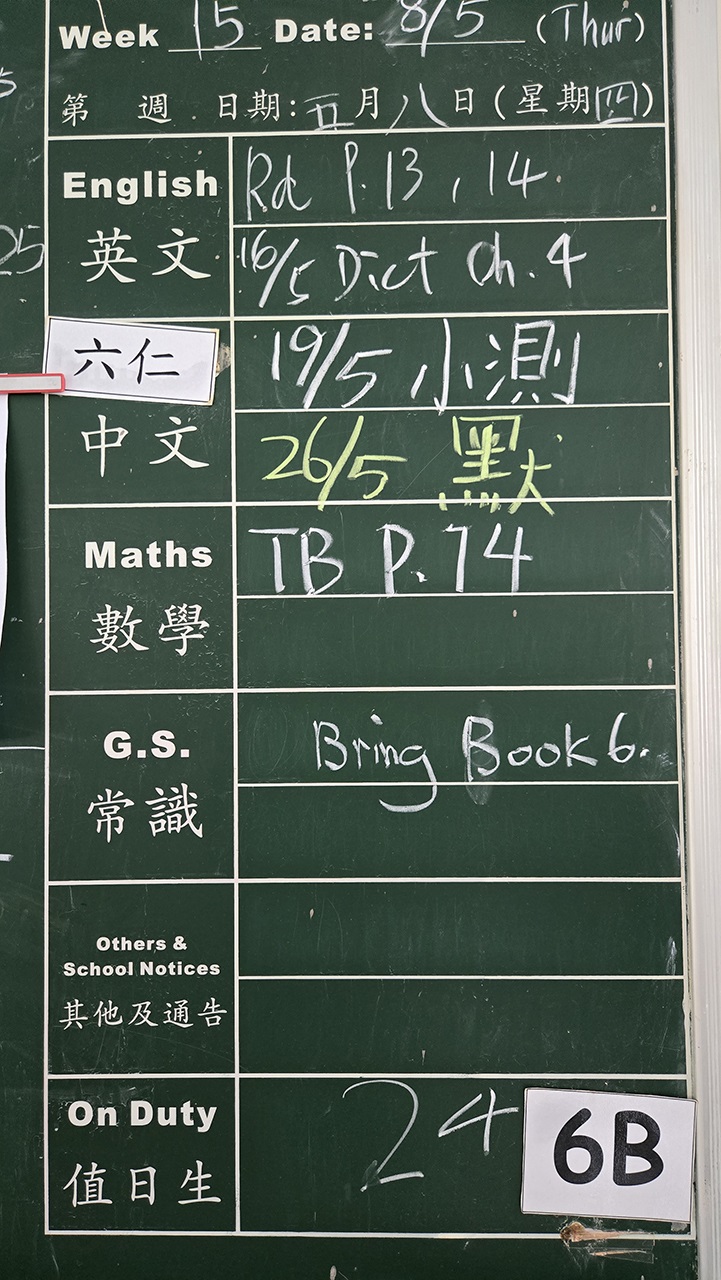 Week 15 Date: 8/5 (Thur)
第 週 日期: 五月八日 (星期四)
English Rd P.13, 14.
英文 16/5 Dict Ch. 4
六仁 19/5 小測
中文 26/5 默
Maths TB P.74
數學
G.S. Bring Book 6.
常識
Others &
School Notices
其他及通告
On Duty 24
值日生
6B
25